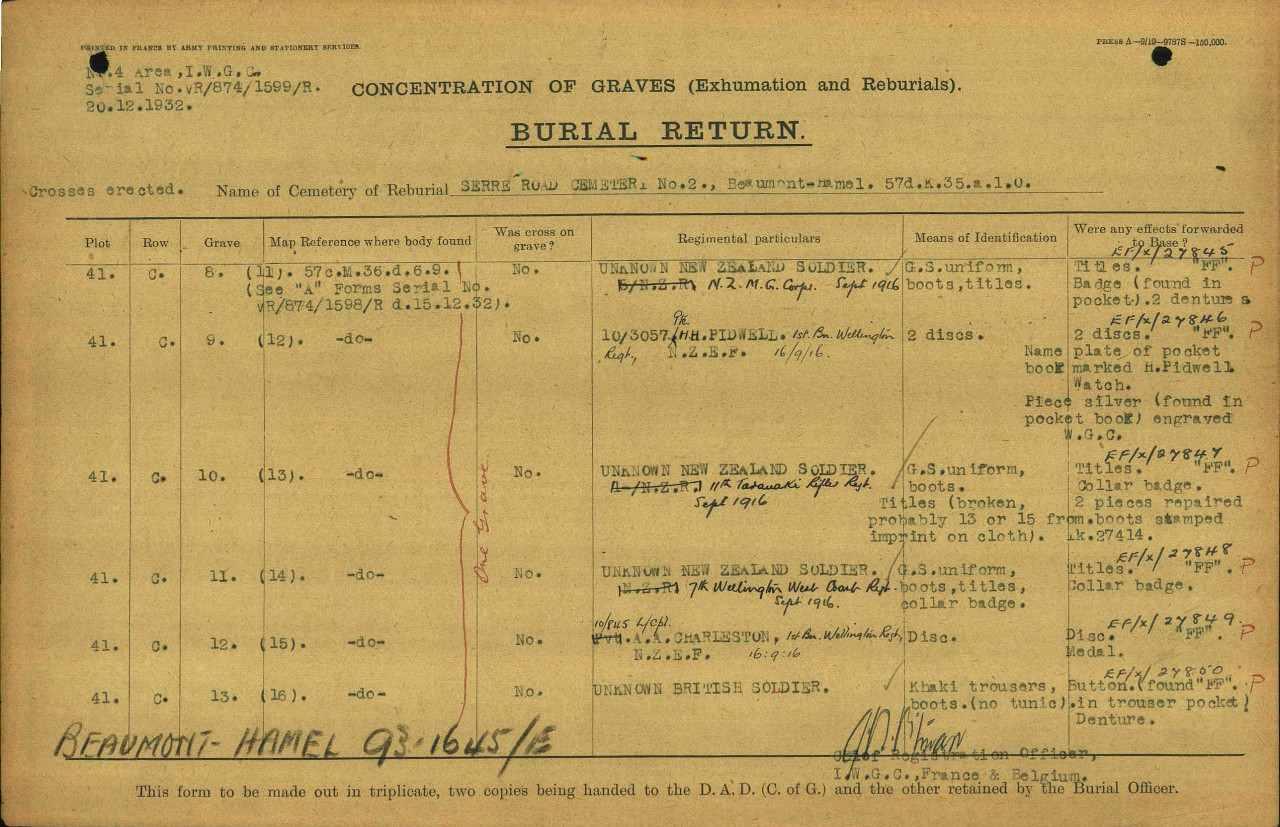 PRINTED IN FRANCE BY ARMY PRINTING AND STATIONERY SERVICES.
PRESS A—9/19—9787S—150,000.
No.4 Area, I.W.G.C.
Serial No. VR/874/1599/R.
20.12.1932.
CONCENTRATION OF GRAVES (Exhumation and Reburials).
BURIAL RETURN.
Crosses erected. Name of Cemetery of Reburial SERRE ROAD CEMETERY No.2., Beaumont-Hamel. 57d.K.35.a.1.0.
Plot Row Grave Map Reference where body found Was cross on grave? Regimental particulars Means of Identification Were any effects forwarded to Base?
EF/x/27845
41. C. 8. (11). 57c.M.36.d.6.9. No. UNKNOWN NEW ZEALAND SOLDIER. G.S.uniform, Titles. "FF". P
(See "A" Forms Serial No. N.Z.M.G. Corps. Sept 1916 boots,titles. Badge (found in
VR/874/1598/R d.15.12.32). pocket).2 dentures
Pte. EF/x/27846
41. C. 9. (12). -do- No. 10/3057 H.H.PIDWELL. 1st. Bn. Wellington 2 discs. 2 discs. "FF". P
Regt, N.Z.E.F. 16/9/16. Name plate of pocket
book marked H.Pidwell
Watch.
Piece silver (found in
pocket book) engraved
W.G.C.
EF/x/27847
41. C. 10. (13). -do- No. UNKNOWN NEW ZEALAND SOLDIER. G.S.uniform, Titles. "FF". P
A-/N.Z.R. 11th Taranaki Rifles Regt. boots. Collar badge.
Sept 1916 Titles (broken, 2 pieces repaired
probably 13 or 15 from boots stamped
imprint on cloth). 1k.27414.
EF/x/27848
41. C. 11. (14). -do- No. UNKNOWN NEW ZEALAND SOLDIER. G.S.uniform, Titles. "FF". P
N.Z.R. 7th Wellington West Coast Regt. boots,titles, Collar badge.
Sept 1916. collar badge.
10/845 L/Cpl. EF/x/27849.
41. C. 12. (15). -do- No. Pvt.A.A.CHARLESTON, 1st Bn. Wellington Regt, Disc. Disc. "FF". P
N.Z.E.F. 16.9.16 Medal.
EF/x/27850
41. C. 13. (16). -do- No. UNKNOWN BRITISH SOLDIER. Khaki trousers, Button.(found "FF". P
boots.(no tunic). in trouser pocket)
Denture.
One Grave.
BEAUMONT-HAMEL 93-1645/E
Chief Registration Officer,
I.W.G.C.,France & Belgium.
This form to be made out in triplicate, two copies being handed to the D. A. D. (C. of G.) and the other retained by the Burial Officer.